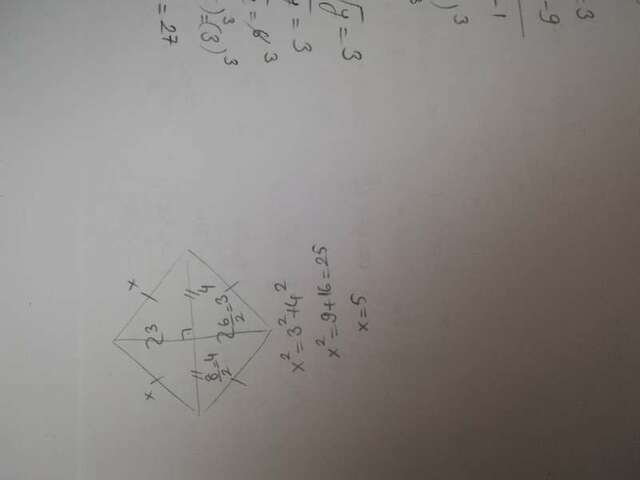 = 3
- 9
- 1
)³
√y = 3
y = 3
)³ = (3)³
= 27
x
3
4
x
8/2 = 4
6/2 = 3
x² = 3² + 4²
x² = 9 + 16 = 25
x = 5